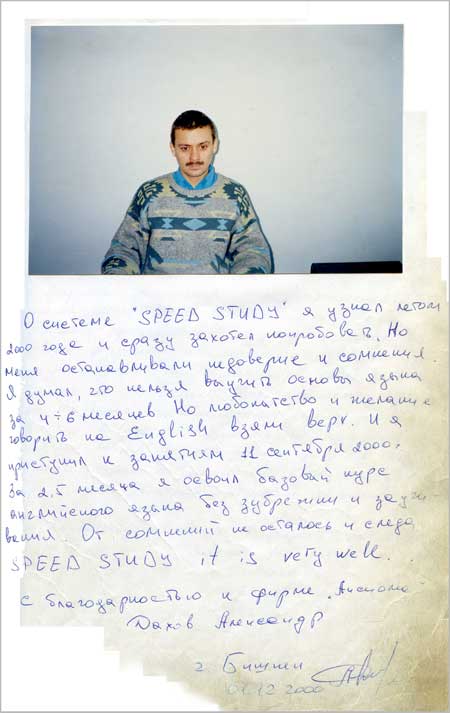 О системе "SPEED STUDY" я узнал летом
2000 года и сразу захотел попробовать. Но
меня останавливали недоверие и сомнения.
Я думал, что нельзя выучить основы языка
за 4÷6 месяцев Но любопатство и желание
говорить на English взяли верх. И я
приступил к занятиям 11 сентября 2000.
За 2,5 месяца я освоил базовый курс
английского языка без зубрежки и заучи-
вания. От сомнений не осталось и следа
SPEED STUDY it is very well.
С благодарностью к фирме
Дахов Александр
г. Бишкек
01.12 2000